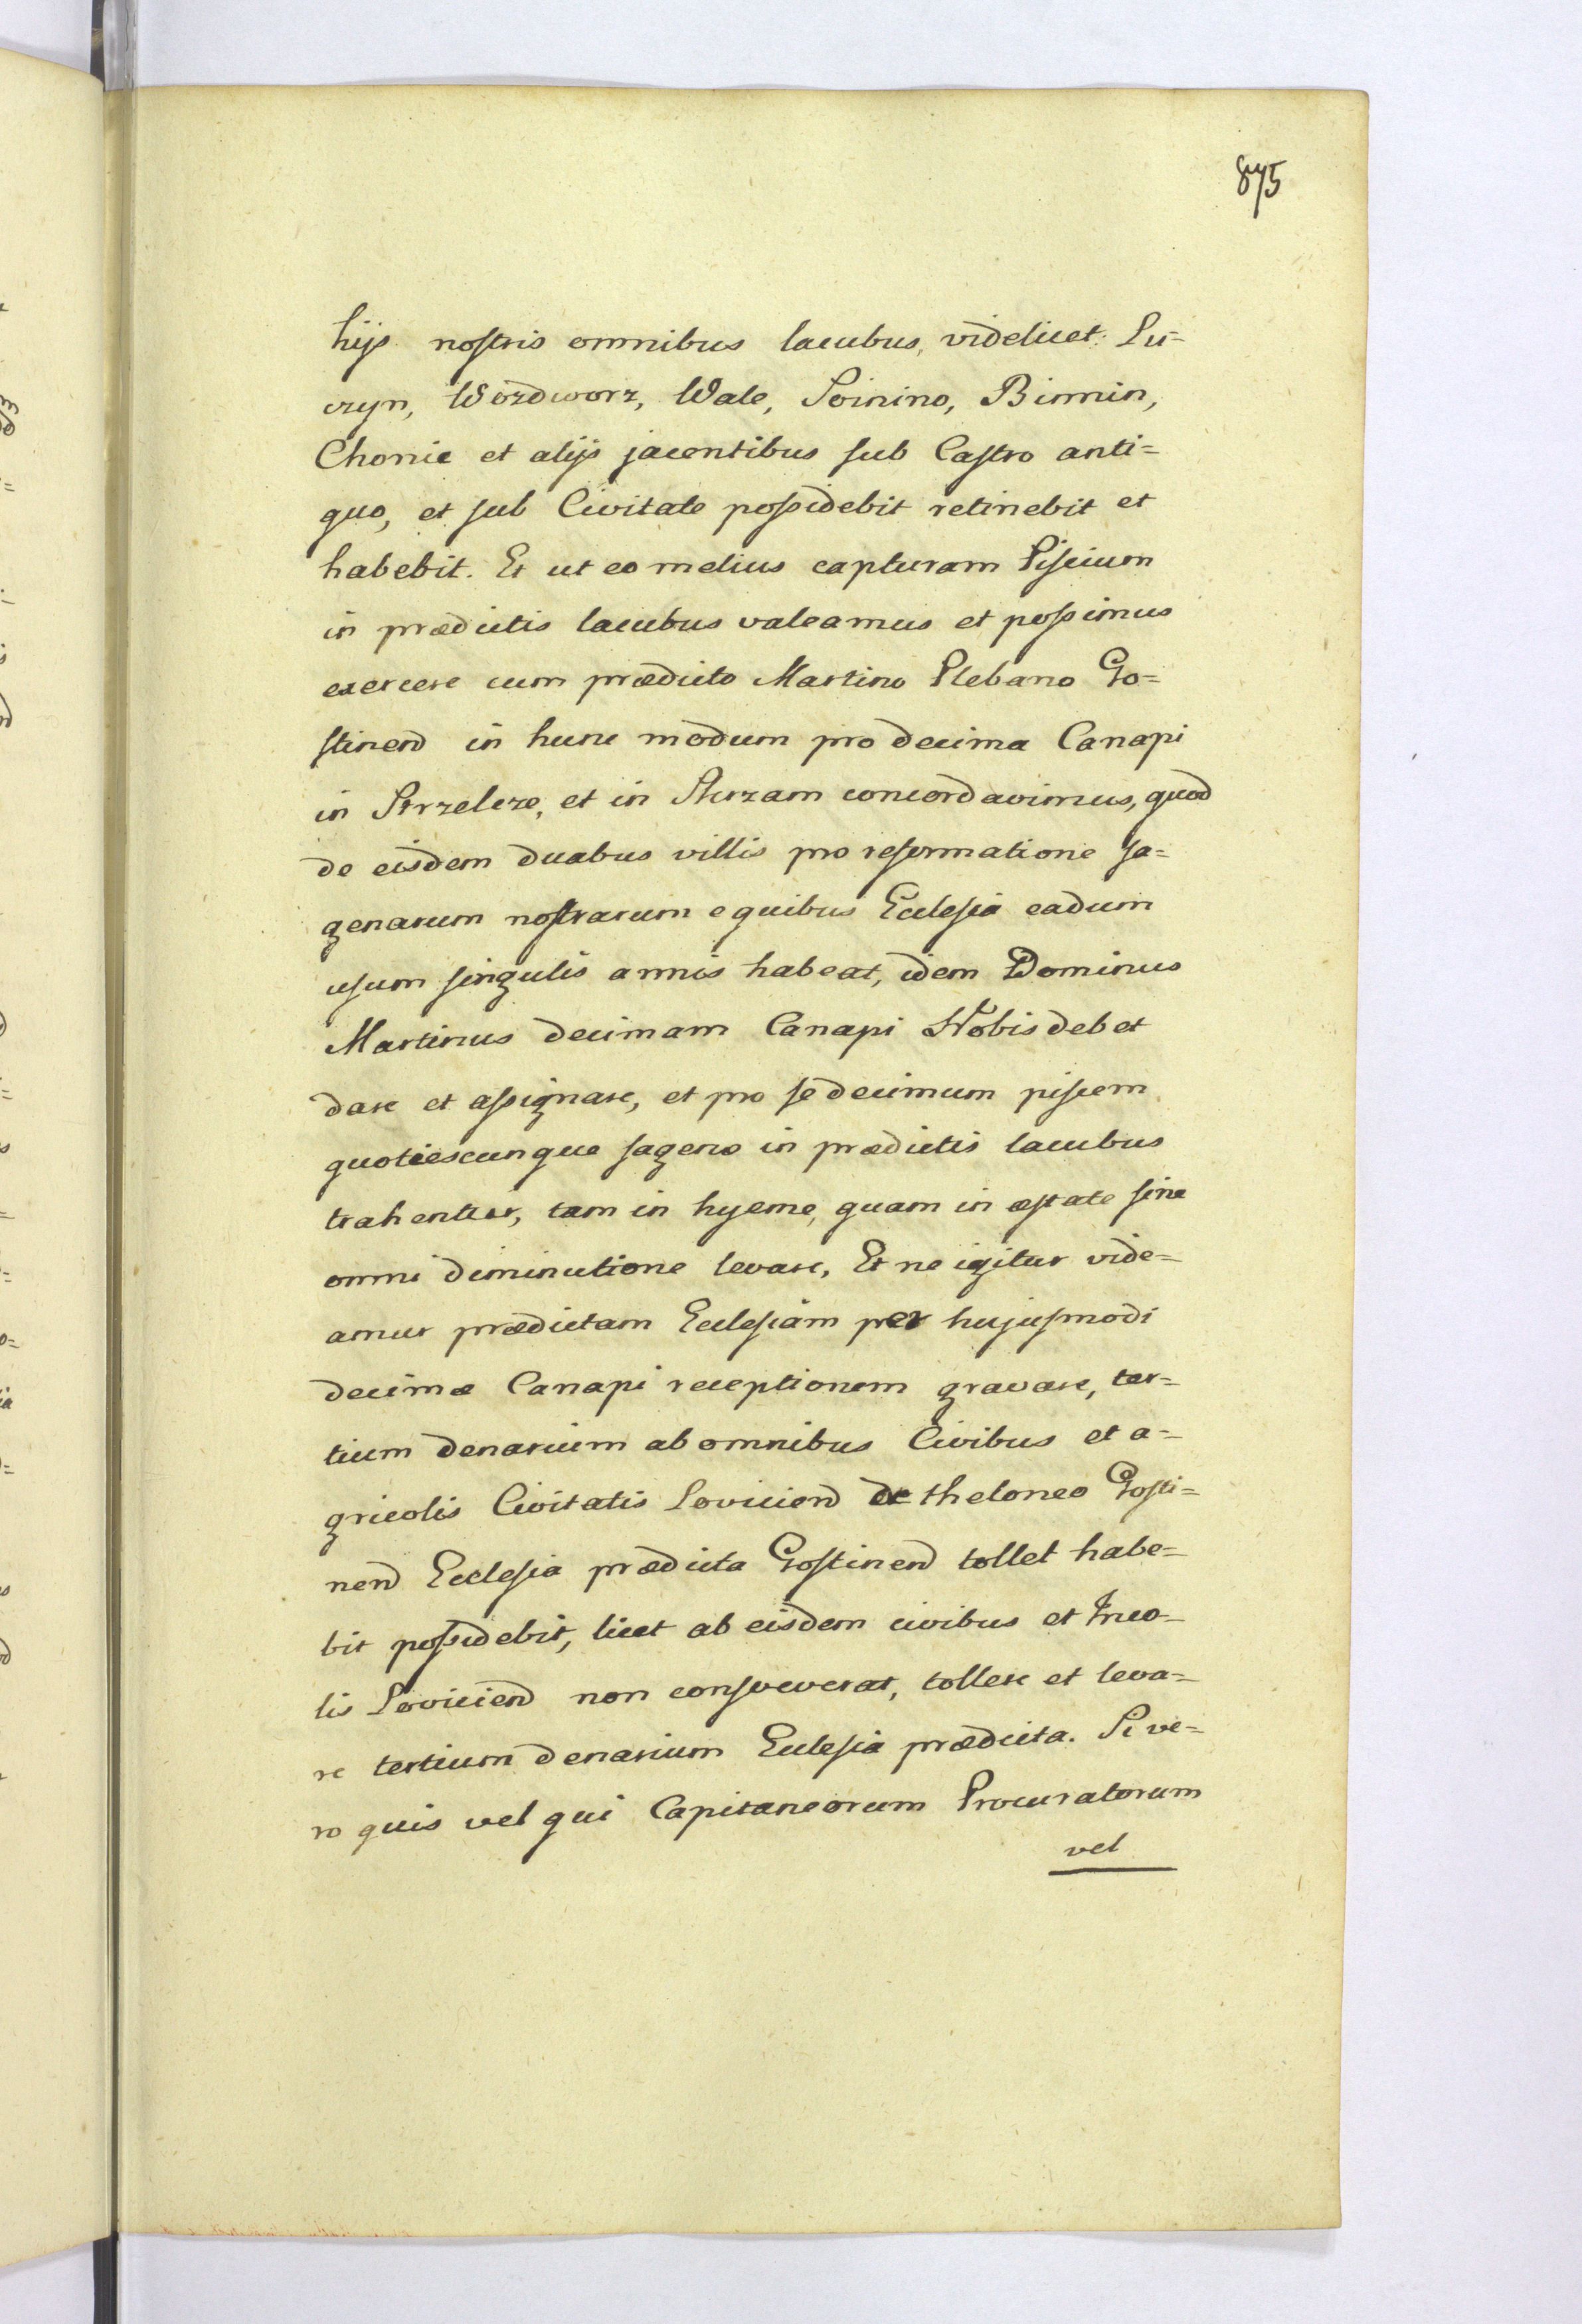 875
hijs nostris omnibus lacubus, videlicet: Lu=
czyn, Wozdworz, Wale, Soinino, Birmin,
Chonie et alijs jacentibus sub Castro anti=
quo, et sub Civitate possidebit retinebit et
habebit. Et ut eo melius capturam Piscium
in prædictis lacubus valeamus et possimus
exercere cum prædicto Martino Plebano Go=
stinen in hunc modum pro decima Canapi
in Strzelcze, et in concordavimus, quod
de eisdem duabus villis pro reformatione Sa=
genarum nostrarum e quibus Ecclesia eadum
usum singulis annis habeat, idem Dominus
Martinus decimam Canapi Nobis debet
dare et assignare, et pro se decimum piscem
quotiescunque sagenæ in prædictis lacubus
trahentur, tam in hyeme, quam in æstate sine
omni diminutione levare, Et ne igitur vide=
amur prædictam Ecclesiam per hujusmodi
decimæ Canapi receptionem gravare, ter=
tium denarium ab omnibus Civibus et a=
gricolis Civitatis Lovicien de theloneo Gosti=
nen Ecclesia prædicta Gostinen tollet habe=
bit possidebit, licet ab eisdem civibus et Inco=
lis Lovicien non consveverat, tollere et leva=
re tertium denarium Ecclesia prædicta. Si ve=
ro quis vel qui Capitaneorum Procuratorum
vel